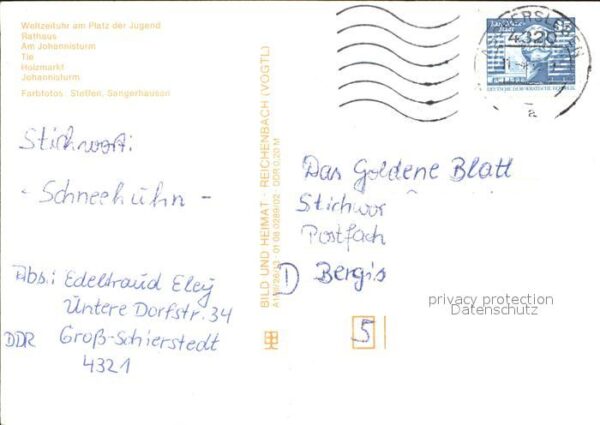 Weltzeituhr am Platz der Jugend
Rathaus
Am Johannisturm
Tie
Holzmarkt
Johannisturm
Farbfotos: Steffen, Sangerhausen
Stichwort:
- Schneehühn -
Abs.: Edeltraud Eley
Untere Dorfstr. 34
DDR Groß-Schierstedt
4321
BILD UND HEIMAT · REICHENBACH (VOGTL)
01 08 0289/02 DDR 0,20 M
ASCHERSLEBEN
4320
a
35
DEUTSCHE DEMOKRATISCHE REPUBLIK
Das Goldene Blatt
Stichwor
Postfach
Bergis
5
privacy protection
Datenschutz